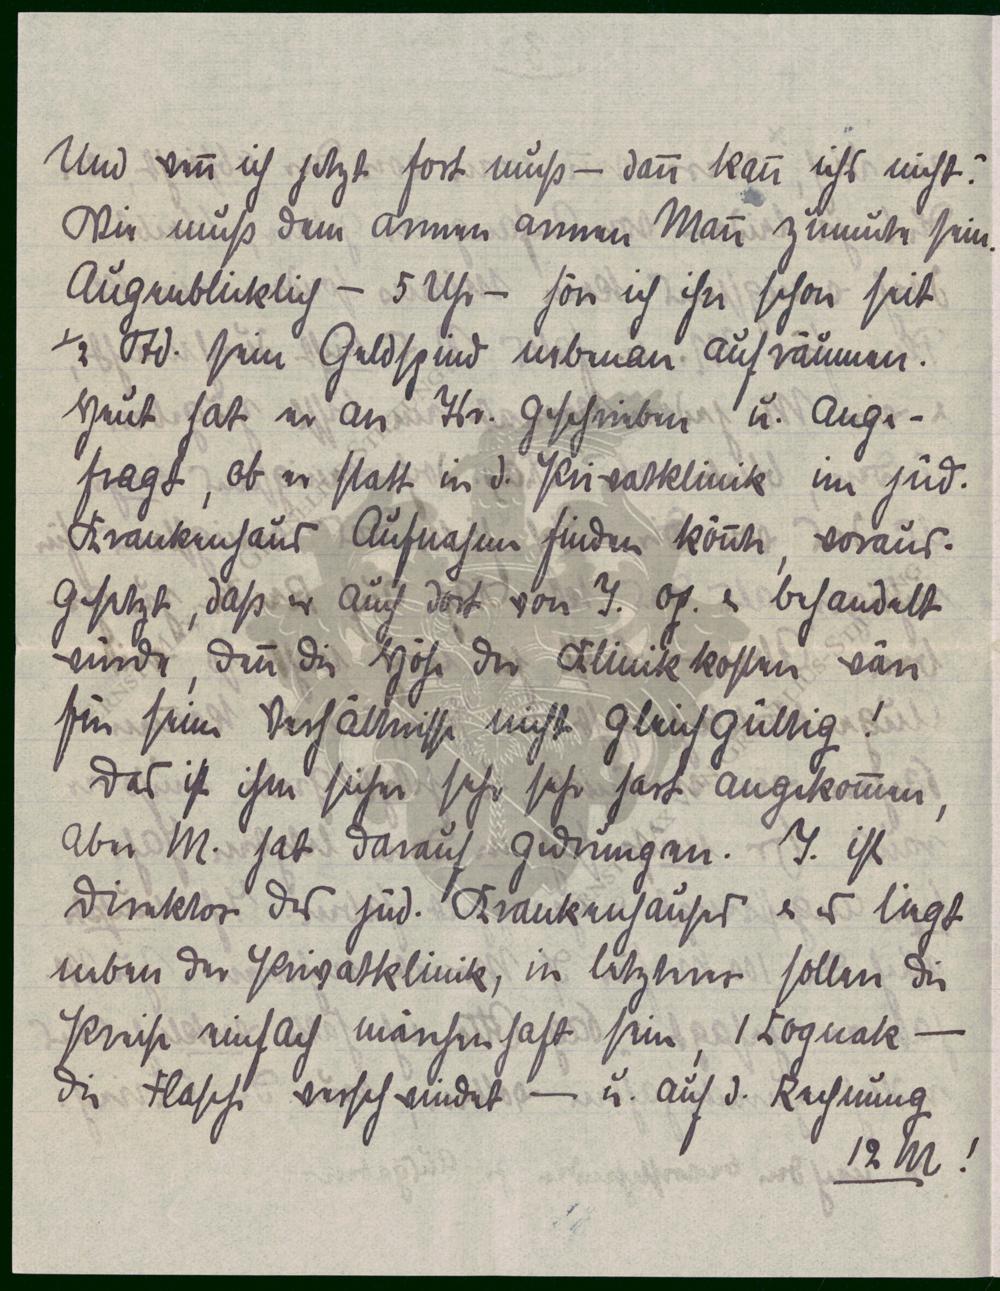 Und wen̅ ich jetzt fort muß — dan̅ kan̅ ichs nicht!
Wie muß dem armen armen Man̅ zumute sein.
Augenblicklich — 5 Uhr — hör ich ihn schon seit
½ Std. sein Geldspind nebenan aufräumen.
Heut hat er an Isr. geschrieben u. ange-
fragt, ob er statt in d. Privatklinik im jüd.
Krankenhaus Aufnahme finden kön̅te, voraus-
gesetzt, daß er auch dort von I. op. & behandelt
würde, den̅ die Höhe der Klinikkosten wären
für seine Verhältnisse nicht gleichgültig!
Das ist ihm sicher sehr sehr hart angekom̅en,
aber M. hat darauf gedrungen. I. ist
Direktor des jüd. Krankenhauses & es liegt
neben der Privatklinik, in letzterer sollen die
Preise einfach märchenhaft sein, 1 Cognak —
die Flasche verschwindet — u. auf d. Rechnung
12 M!